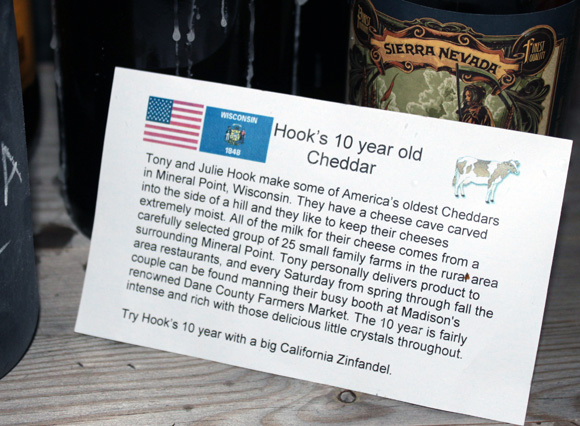 SIERRA NEVADA
FINEST QUALITY
WISCONSIN
1848
Hook's 10 year old
Cheddar
Tony and Julie Hook make some of America's oldest Cheddars
in Mineral Point, Wisconsin. They have a cheese cave carved
into the side of a hill and they like to keep their cheeses
extremely moist. All of the milk for their cheese comes from a
carefully selected group of 25 small family farms in the rural area
surrounding Mineral Point. Tony personally delivers product to
area restaurants, and every Saturday from spring through fall the
couple can be found manning their busy booth at Madison's
renowned Dane County Farmers Market. The 10 year is fairly
intense and rich with those delicious little crystals throughout.
Try Hook's 10 year with a big California Zinfandel.